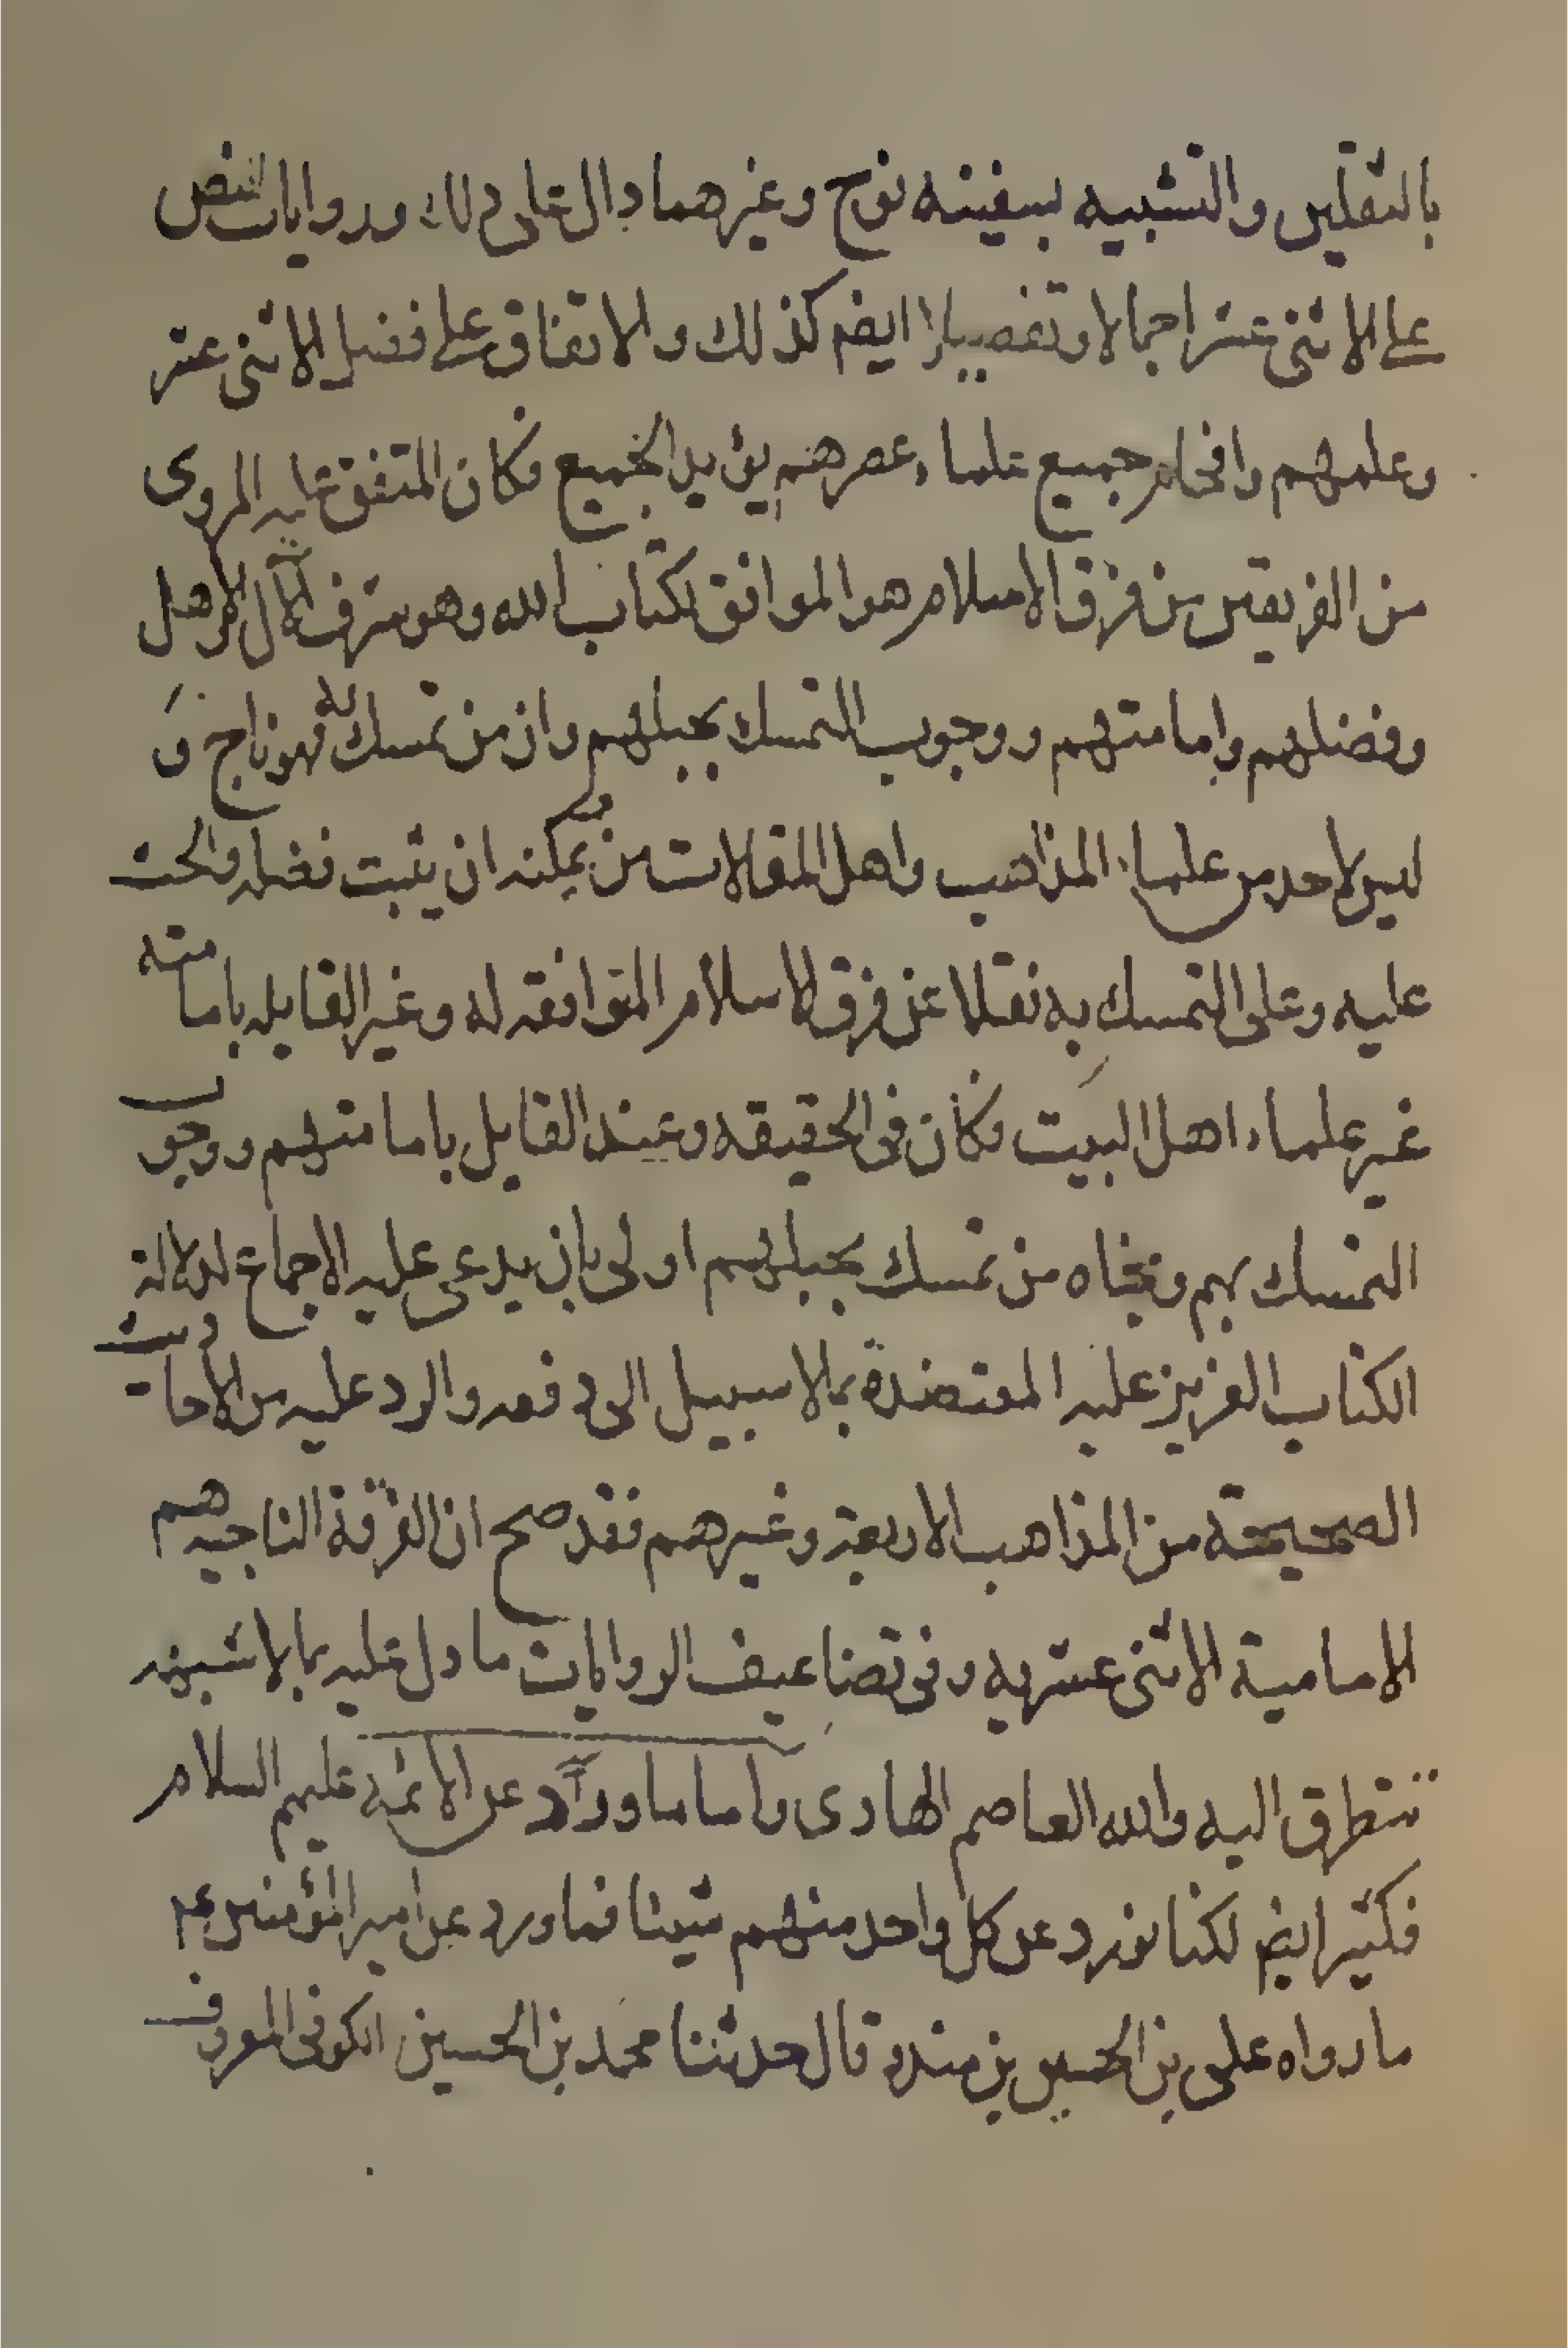 بالثقلين والتشبيه بسفينه نوح وغيرهما دال على ذلك وروايات النص
على الاثنى عشر اجمالا وتفصيلا ايضم كذلك والاتفاق على فضل الاثنى عشر
وعلمهم وافحام جميع علماء عصرهم يؤيد الجميع فكان المتفق عليه المروى
من الفريقين من فرق الاسلام هو الموافق لكتاب الله وهو شرف الال
وفضلهم وامامتهم ووجوب التمسك بحبلهم وان من تمسك به فهو ناج و
ليس لاحد من علماء المذاهب واهل المقالات من يمكنه ان يثبت فضله والحث
عليه وعلى التمسك به نقلا عن فرق الاسلام المتوافقه له وغير القايله بامامته
غير علماء اهل البيت فكان فى الحقيقه وعند القايل بامامتهم ووجوب
التمسك بهم ونجاه من تمسك بحبلهم اولى بان يدعى عليه الاجماع لدلالة
الكتاب العزيز عليه المعتضدة بمالا سبيل الى دفعه والرد عليه من الاحاديث
الصحيحة من المذاهب الاربعة وغيرهم فقد صح ان الفرقة الناجيه هم
الامامية الاثنى عشريه وفى تضاعيف الروايات ما دل عليه بما لا شبهه
تتطرق اليه والله العاصم الهادى واما ما ورد عن الائمه عليهم السلام
فكثير ايضم لكنا نورد عن كل واحد منهم شيئا فما ورد عن امير المؤمنين عم
ما رواه على بن الحسين بن مندد قال حدثنا محمد بن الحسين الكوفى المعروف